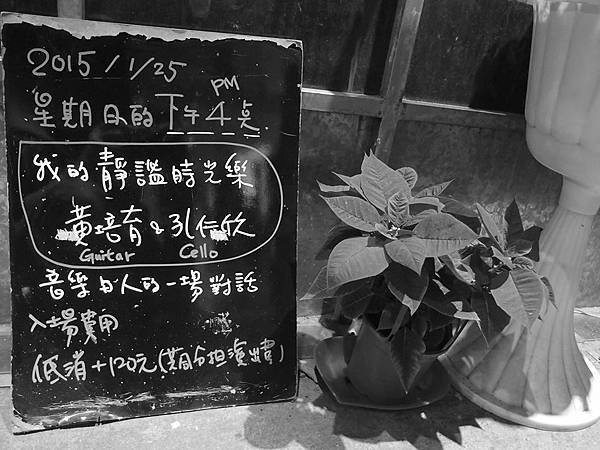 2015/1/25
星期日的下午4點 PM
我的靜謐時光樂
黃培育 & 孔信欣
Guitar Cello
音樂與人的一場對話
入場費用
低消+120元(共同分担演出費)